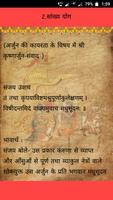 1:59
2.सांख्य योग
(अर्जुन की कायरता के विषय में श्री
कृष्णार्जुन-संवाद )
संजय उवाच
तं तथा कृपयाविष्टमश्रुपूर्णाकुलेक्षणम् ।
विषीदन्तमिदं वाक्यमुवाच मधुसूदनः ॥
भावार्थ :
संजय बोले- उस प्रकार करुणा से व्याप्त
और आँसुओं से पूर्ण तथा व्याकुल नेत्रों वाले
शोकयुक्त उस अर्जुन के प्रति भगवान मधुसूदन